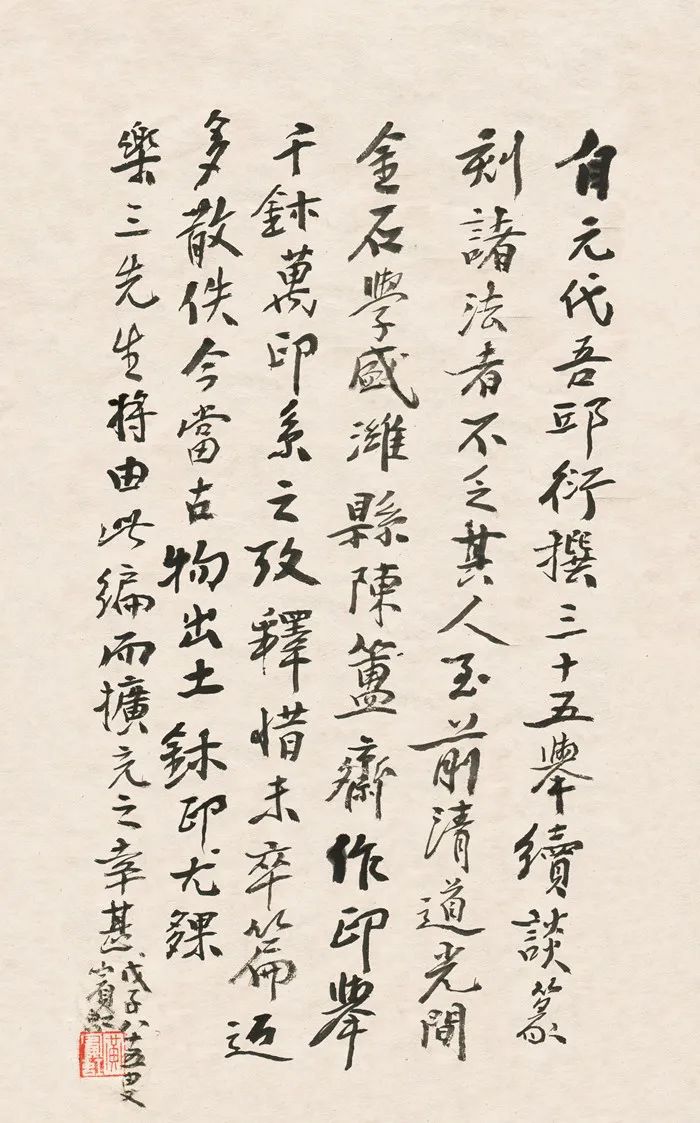 自元代吾邱衍撰三十五舉續談篆
刻諸法者不乏其人至前清道光間
金石學盛濰縣陳簠齋作印舉
千鉨萬印系之攷釋惜未卒篇近
多散佚今當古物出土鉨印尤夥
樂三先生將由此編而擴充之幸甚
戊子八十五叟
賓虹
黃賓虹